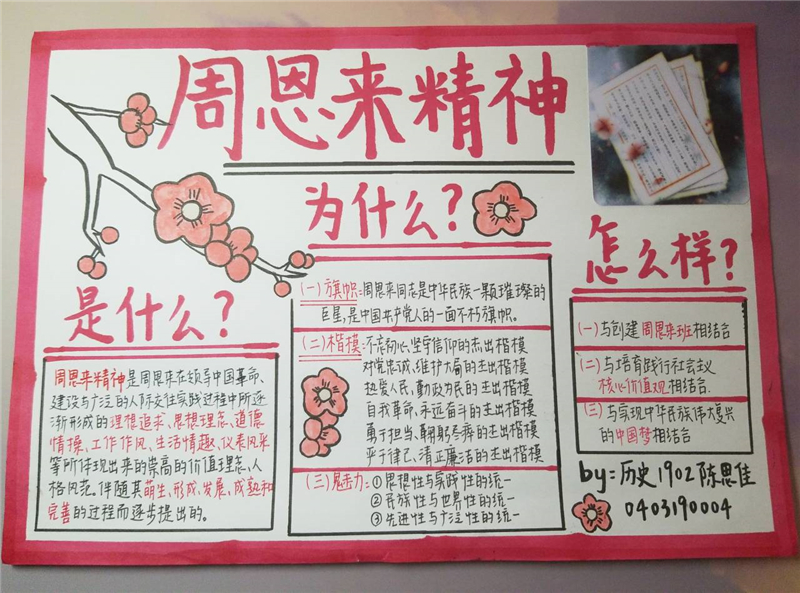 周恩来精神
是什么?
周恩来精神是周恩来在领导中国革命、
建设与广泛的人际交往实践过程中所逐
渐形成的理想追求、思想理念、道德
情操、工作作风、生活情趣、仪表风采
等所体现出来的崇高的价值理念、人
格风范。伴随其萌生、形成、发展、成熟和
完善的过程而逐步提出的。
为什么?
(一)旗帜:周恩来同志是中华民族一颗璀璨的
巨星,是中国共产党人的一面不朽旗帜。
(二)楷模:不忘初心、坚守信仰的杰出楷模
对党忠诚、维护大局的杰出楷模
热爱人民、勤政为民的杰出楷模
自我革命、永远奋斗的杰出楷模
勇于担当、鞠躬尽瘁的杰出楷模
严于律己、清正廉洁的杰出楷模
(三)魅力:①思想性与实践性的统一
②民族性与世界性的统一
③先进性与广泛性的统一
怎么样?
(一)与创建周恩来班相结合
(二)与培育践行社会主义
核心价值观相结合
(三)与实现中华民族伟大复兴
的中国梦相结合
by:历史1902陈思佳
0403190004